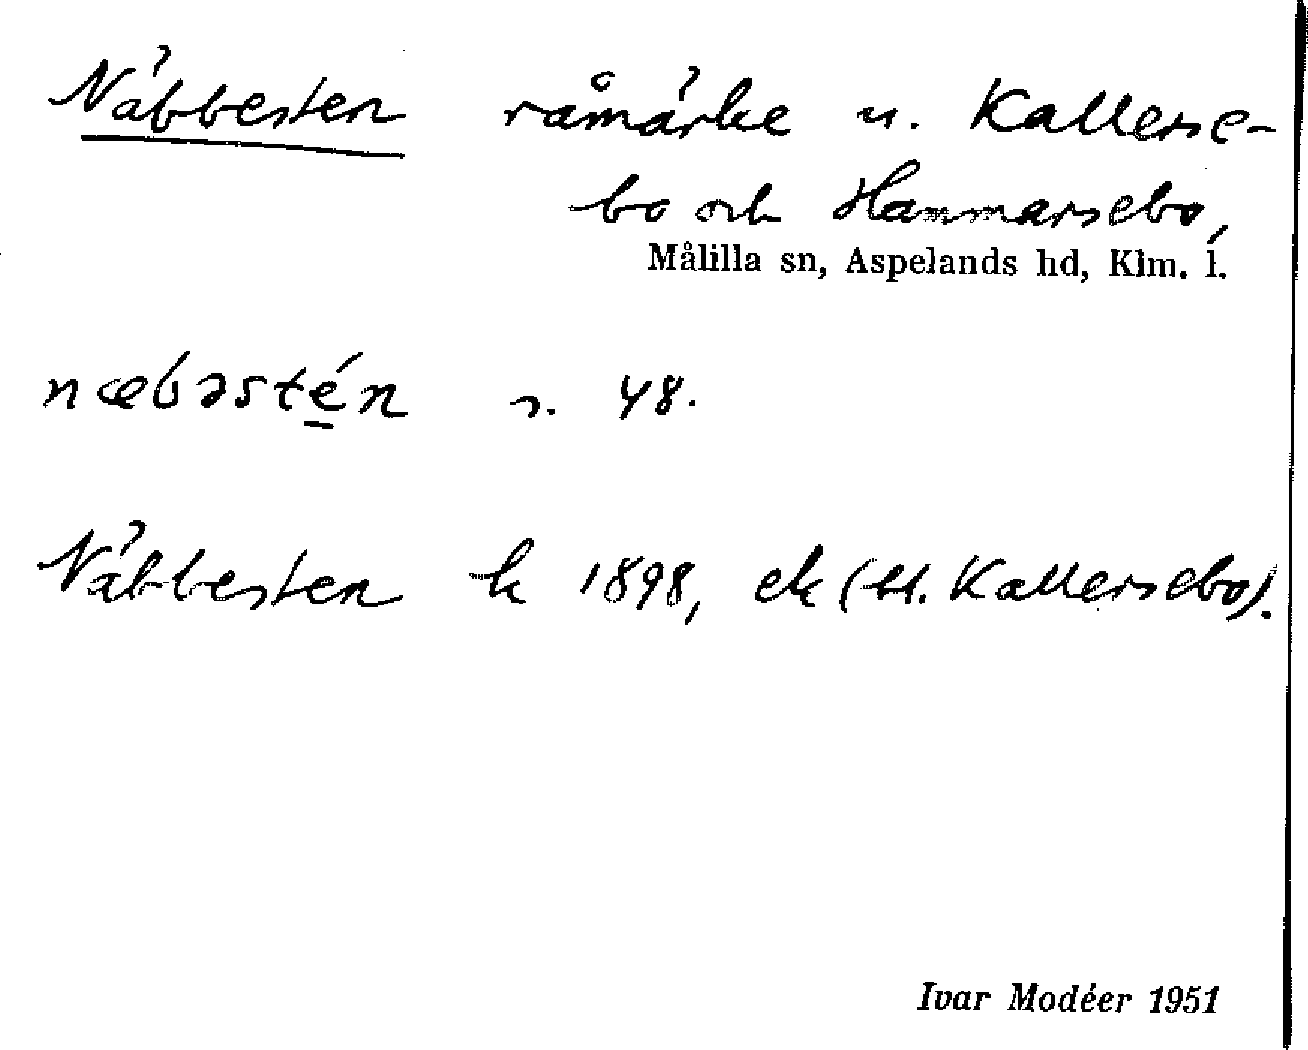 Näbbesten råmärke u. Kallerse-
bo och Hammarsebo,
Målilla sn, Aspelands hd, Klm. l.
næbəstén s. 48.
Näbbesten k 1898, ek (H. Kallersebo).
Ivar Modéer 1951